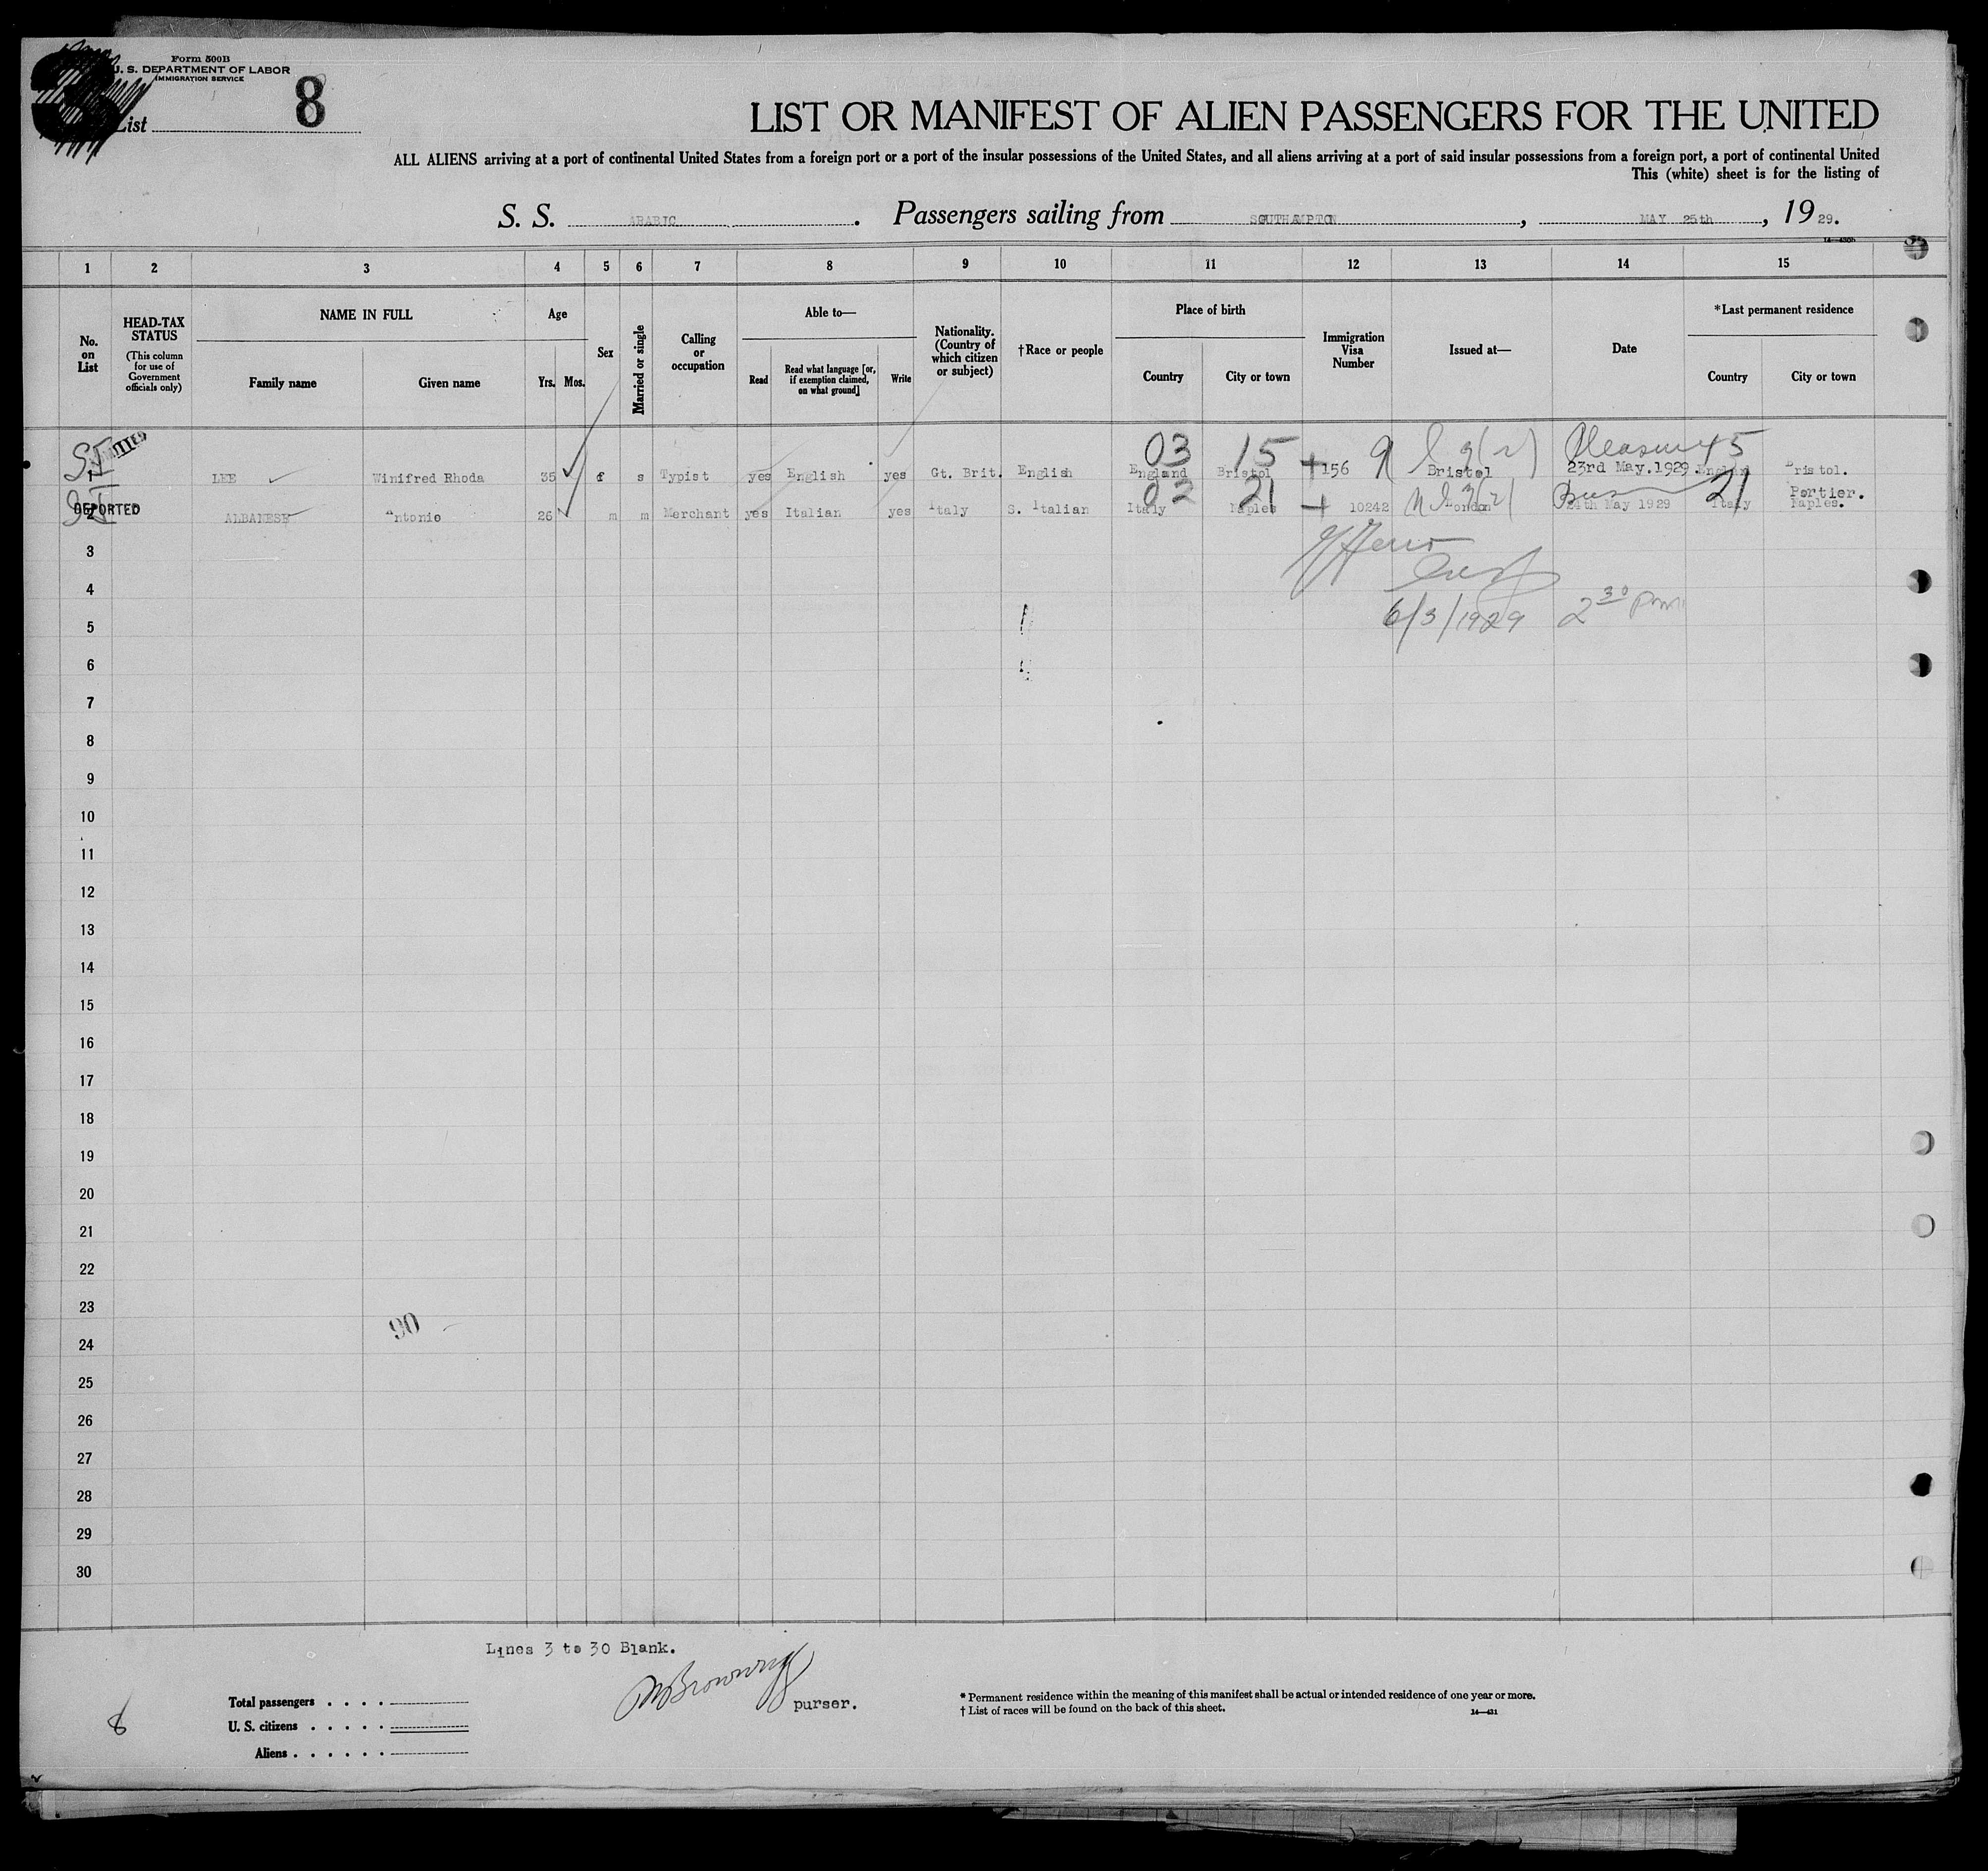 Form 500B
U. S. DEPARTMENT OF LABOR
IMMIGRATION SERVICE
3
List 8
LIST OR MANIFEST OF ALIEN PASSENGERS FOR THE UNITED
ALL ALIENS arriving at a port of continental United States from a foreign port or a port of the insular possessions of the United States, and all aliens arriving at a port of said insular possessions from a foreign port, a port of continental United
This (white) sheet is for the listing of
S. S. ARABIC. Passengers sailing from SOUTHAMPTON, MAY 25th, 1929.
14—430b
1 2 3 4 5 6 7 8 9 10 11 12 13 14 15
No. on List
HEAD-TAX STATUS
(This column for use of Government officials only)
NAME IN FULL
Family name
Given name
Age
Yrs. Mos.
Sex
Married or single
Calling or occupation
Able to—
Read
Read what language [or, if exemption claimed, on what ground]
Write
Nationality. (Country of which citizen or subject)
†Race or people
Place of birth
Country
City or town
Immigration Visa Number
Issued at—
Date
*Last permanent residence
Country
City or town
SI ADMITTED
03 15 9 Pleasure 45
1 LEE Winifred Rhoda 35 f s Typist yes English yes Gt. Brit. English England Bristol 156 Bristol 23rd May.1929 England Bristol.
SI DEPORTED
02 21 Bus 21 Portier.
2 ALBANESE Antonio 26 m m Merchant yes Italian yes Italy S. Italian Italy Naples 10242 London 24th May 1929 Italy Naples.
3
4
6/3/1929 2 30 pm
5
6
7
8
9
10
11
12
13
14
15
16
17
18
19
20
21
22
23
90
24
25
26
27
28
29
30
Lines 3 to 30 Blank.
purser.
8
Total passengers . . . .
U. S. citizens . . . . .
Aliens . . . . . .
* Permanent residence within the meaning of this manifest shall be actual or intended residence of one year or more.
† List of races will be found on the back of this sheet.
14—431